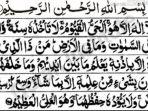 بسم الله الرحمن الرحيم
الله لا إله إلا هو الحي القيوم لا تأخذه سنة
السموات وما في الأرض من ذا الذي
إلا بإذنه يعلم ما بين أيديهم وما خلفهم
بشيء من علمه إلا بما شاء وسع
ولا يؤده حفظهما وهو العلي العظيم